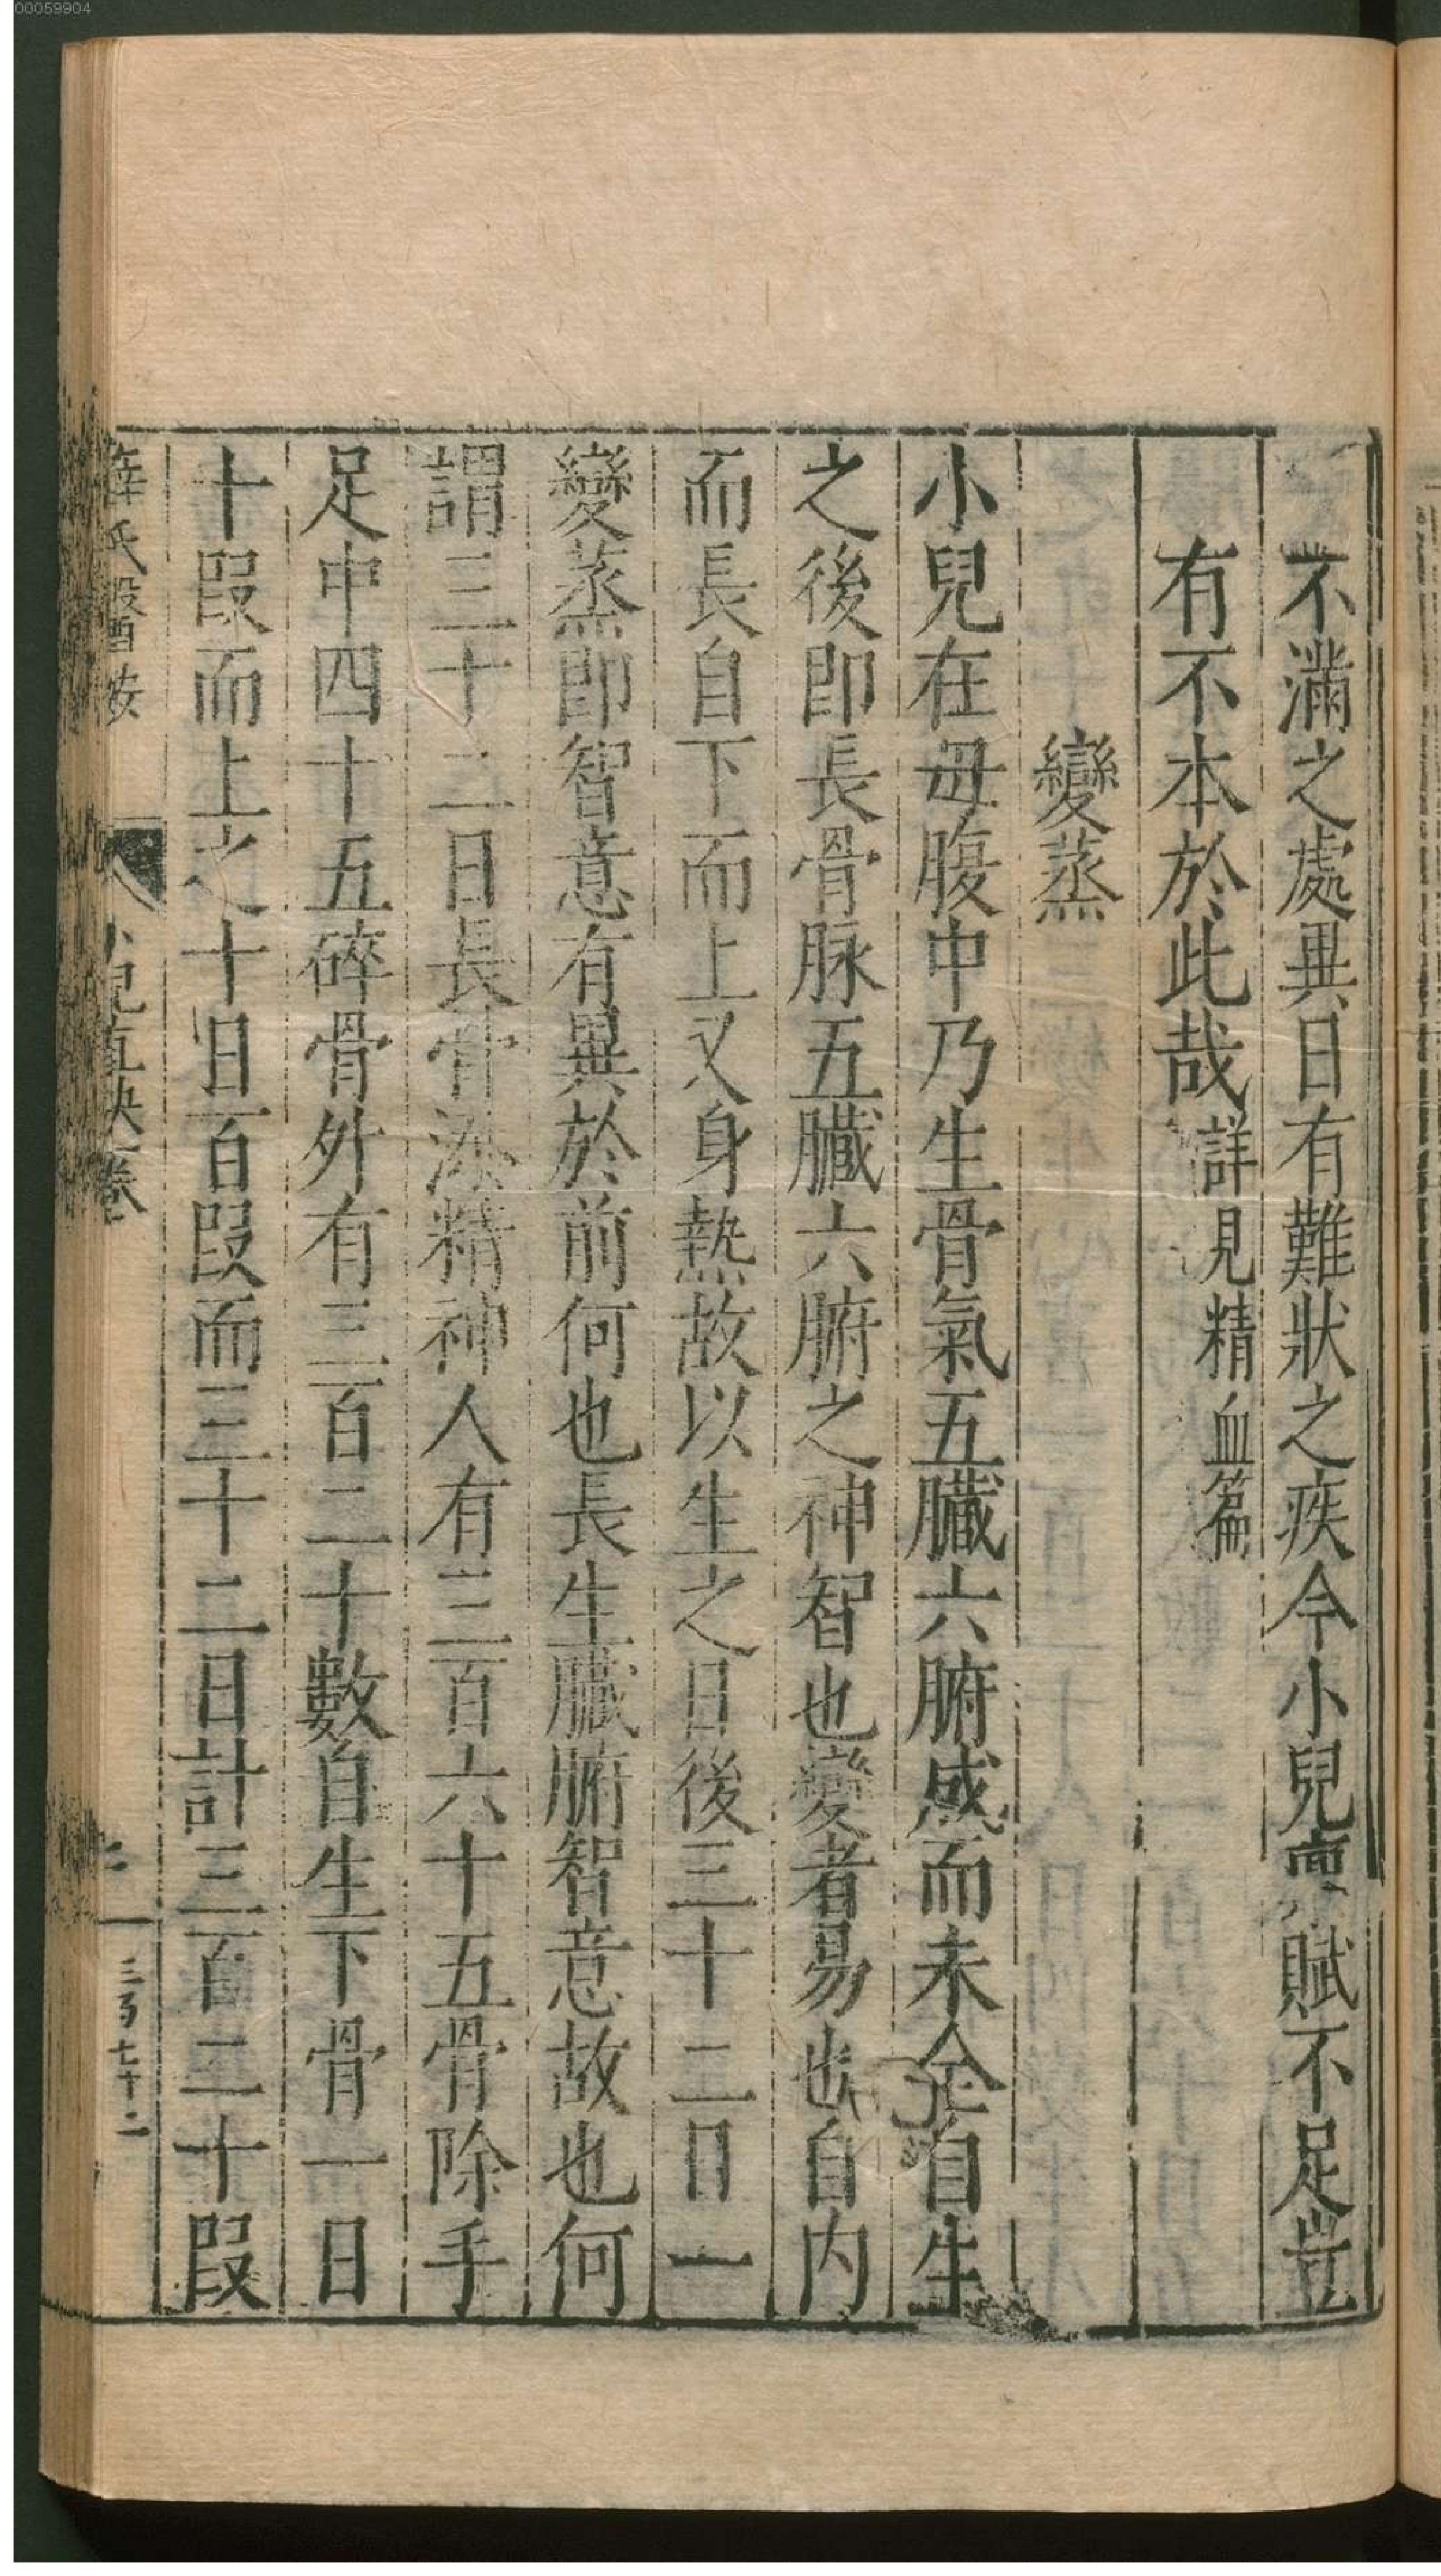 不滿之處異日有難狀之疾今小兒稟賦不足豈
有不本於此哉詳見精血篇
變蒸
小兒在母腹中乃生骨氣五臟六腑感而未全自生
之後即長骨脉五臟六腑之神智也變者易也自内
而長自下而上又身熱故以生之日後三十二日一
變蒸即智意有異於前何也長生臟腑智意故也何
謂三十二日長骨添精神人有三百六十五骨除手
足中四十五碎骨外有三百二十數自生下骨一日
十叚而上之十日百叚而三十二日計三百二十叚
薛氏醫按
小兒直訣卷一
三百七十二
00059904